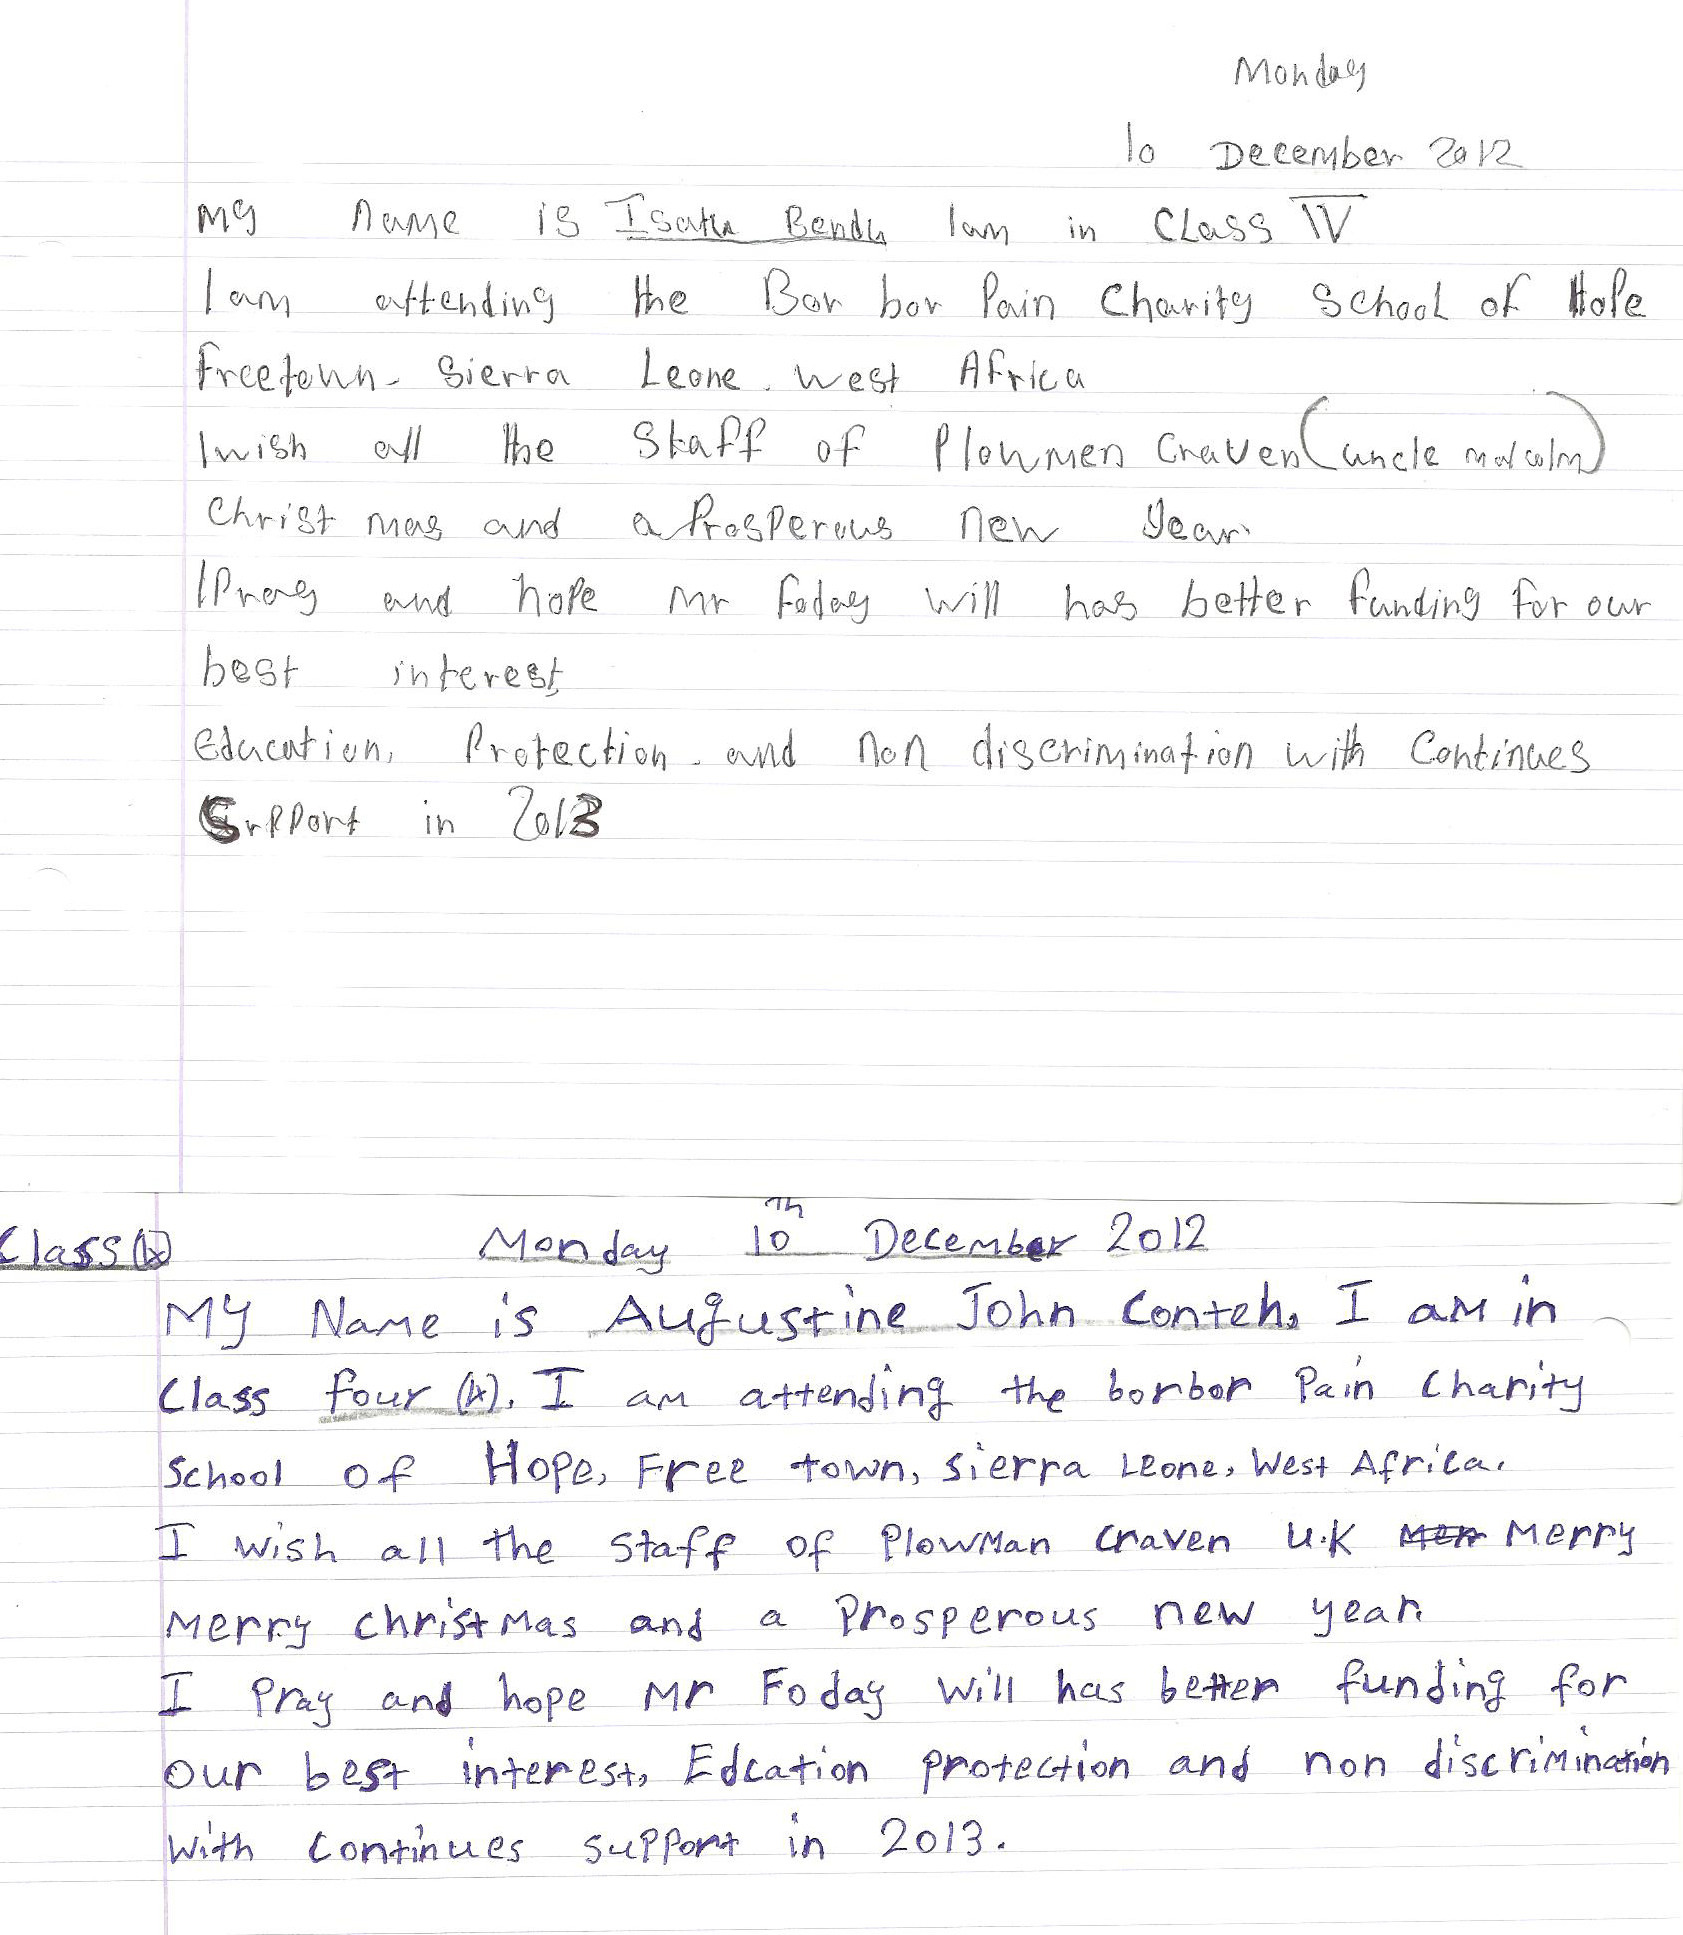 Monday
10 December 2012
My Name is Isatu Bendu Iam in CLass IV
Iam attending the Bor bor Pain Charity School of Hope
freetown. Sierra Leone. West Africa
Iwish all the Staff of Plowmen Craven (uncle malcolm)
Christ mas and a Prosperous new year.
IPray and hope Mr foday will has better funding for our
best interest,
Education, Protection. and non discrimination with Continues
Support in 2013
Class (4) Monday 10th December 2012
My Name is Augustine John Conteh, I am in
Class four (4). I am attending the borbor Pain Charity
School of Hope, Free town, Sierra Leone, West Africa.
I wish all the staff of Plowman Craven U.K Merry
Merry christmas and a Prosperous new year.
I Pray and hope Mr Foday will has better funding for
our best interest, Edcation protection and non discrimination
With continues support in 2013.